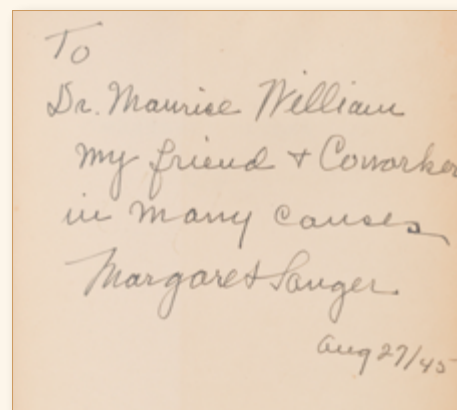 To
Dr. Maurice William
my friend + Coworker
in many causes
Margaret Sanger
Aug 27/45